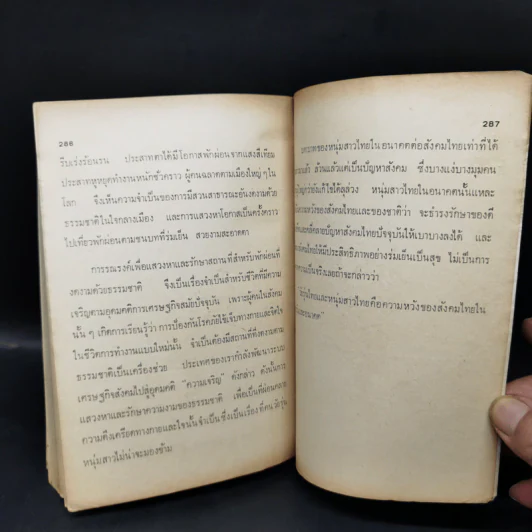 286
รีบเร่งร้อนรน ประสาทตาได้มีโอกาสพักผ่อนจากแสงสีเทียม
ประสาทหูหยุดทำงานหนักชั่วคราว ผู้คนฉลาดตามเมืองใหญ่ๆใน
โลก จึงเห็นความจำเป็นของการมีสวนสาธารณะอันงดงามด้วย
ธรรมชาติในใจกลางเมือง และการแสวงหาโอกาสเป็นครั้งคราว
ไปเที่ยวพักผ่อนตามชนบทที่ร่มเย็น สวยงามสะอาดตา
การรณรงค์เพื่อแสวงหาและรักษาสถานที่สำหรับพักผ่อนที่
งดงามด้วยธรรมชาติ จึงเป็นเรื่องจำเป็นสำหรับชีวิตที่มีความ
เจริญตามอุดมคติการเศรษฐกิจสมัยปัจจุบัน เพราะผู้คนในสังคม
นั้น ๆ เกิดการเรียนรู้ว่า การป้องกันโรคภัยไข้เจ็บทางกายและจิตใจ
ในชีวิตการทำงานแบบใหม่นั้น จำเป็นต้องมีสถานที่ที่งดงามตาม
ธรรมชาติเป็นเครื่องช่วย ประเทศของเรากำลังพัฒนาระบบ
เศรษฐกิจสังคมไปสู่อุดมคติ "ความเจริญ" ดังกล่าว ดังนั้นการ
แสวงหาและรักษาความงามของธรรมชาติ เพื่อเป็นที่ผ่อนคลาย
ความตึงเครียดทางกายและใจนั้นจำเป็น ซึ่งเป็นเรื่องที่คน วัยรุ่น
หนุ่มสาวไม่น่าจะมองข้าม
287
บทบาทของหนุ่มสาวไทยในอนาคตต่อสังคมไทยเท่าที่ได้
แล้ว ล้วนแล้วแต่เป็นปัญหาสังคม ซึ่งบางแง่บางมุมคน
ยังแก้ไขไม่ได้ลุล่วง หนุ่มสาวไทยในอนาคตนั้นแหละ
ความหวังของสังคมไทยและของชาติว่า จะธำรงรักษาของดี
คลี่คลายปัญหาสังคมไทยปัจจุบันให้เบาบางลงได้ และ
ไทยให้มีประสิทธิภาพอย่างร่มเย็นเป็นสุข ไม่เป็นการ
เป็นจริงเลยถ้าจะกล่าวว่า
"วัยรุ่นไทยและหนุ่มสาวไทยคือความหวังของสังคมไทยใน
อนาคต"